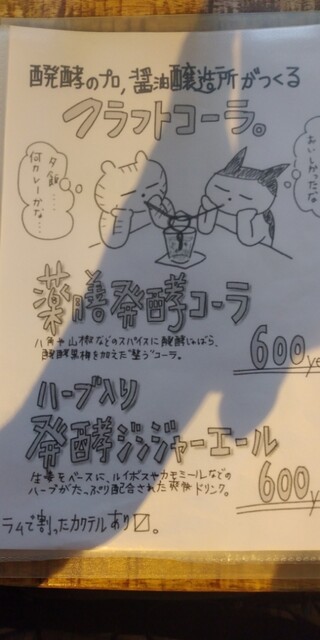 醗酵のプロ,醤油醸造所がつくる
クラフトコーラ。
夕飯…
何カレーかな…
おいしかったな
薬膳発酵コーラ
八角や山椒などのスパイスに醗酵しょうが、
醗酵黒梅を加えた"整う"コーラ。
600ye
ハーブ入り
発酵ジンジャーエール
生姜をベースに、ルイボスやカモミールなどの
ハーブがたっぷり配合された爽快ドリンク。
600y
ラムで割ったカクテルあり〼。